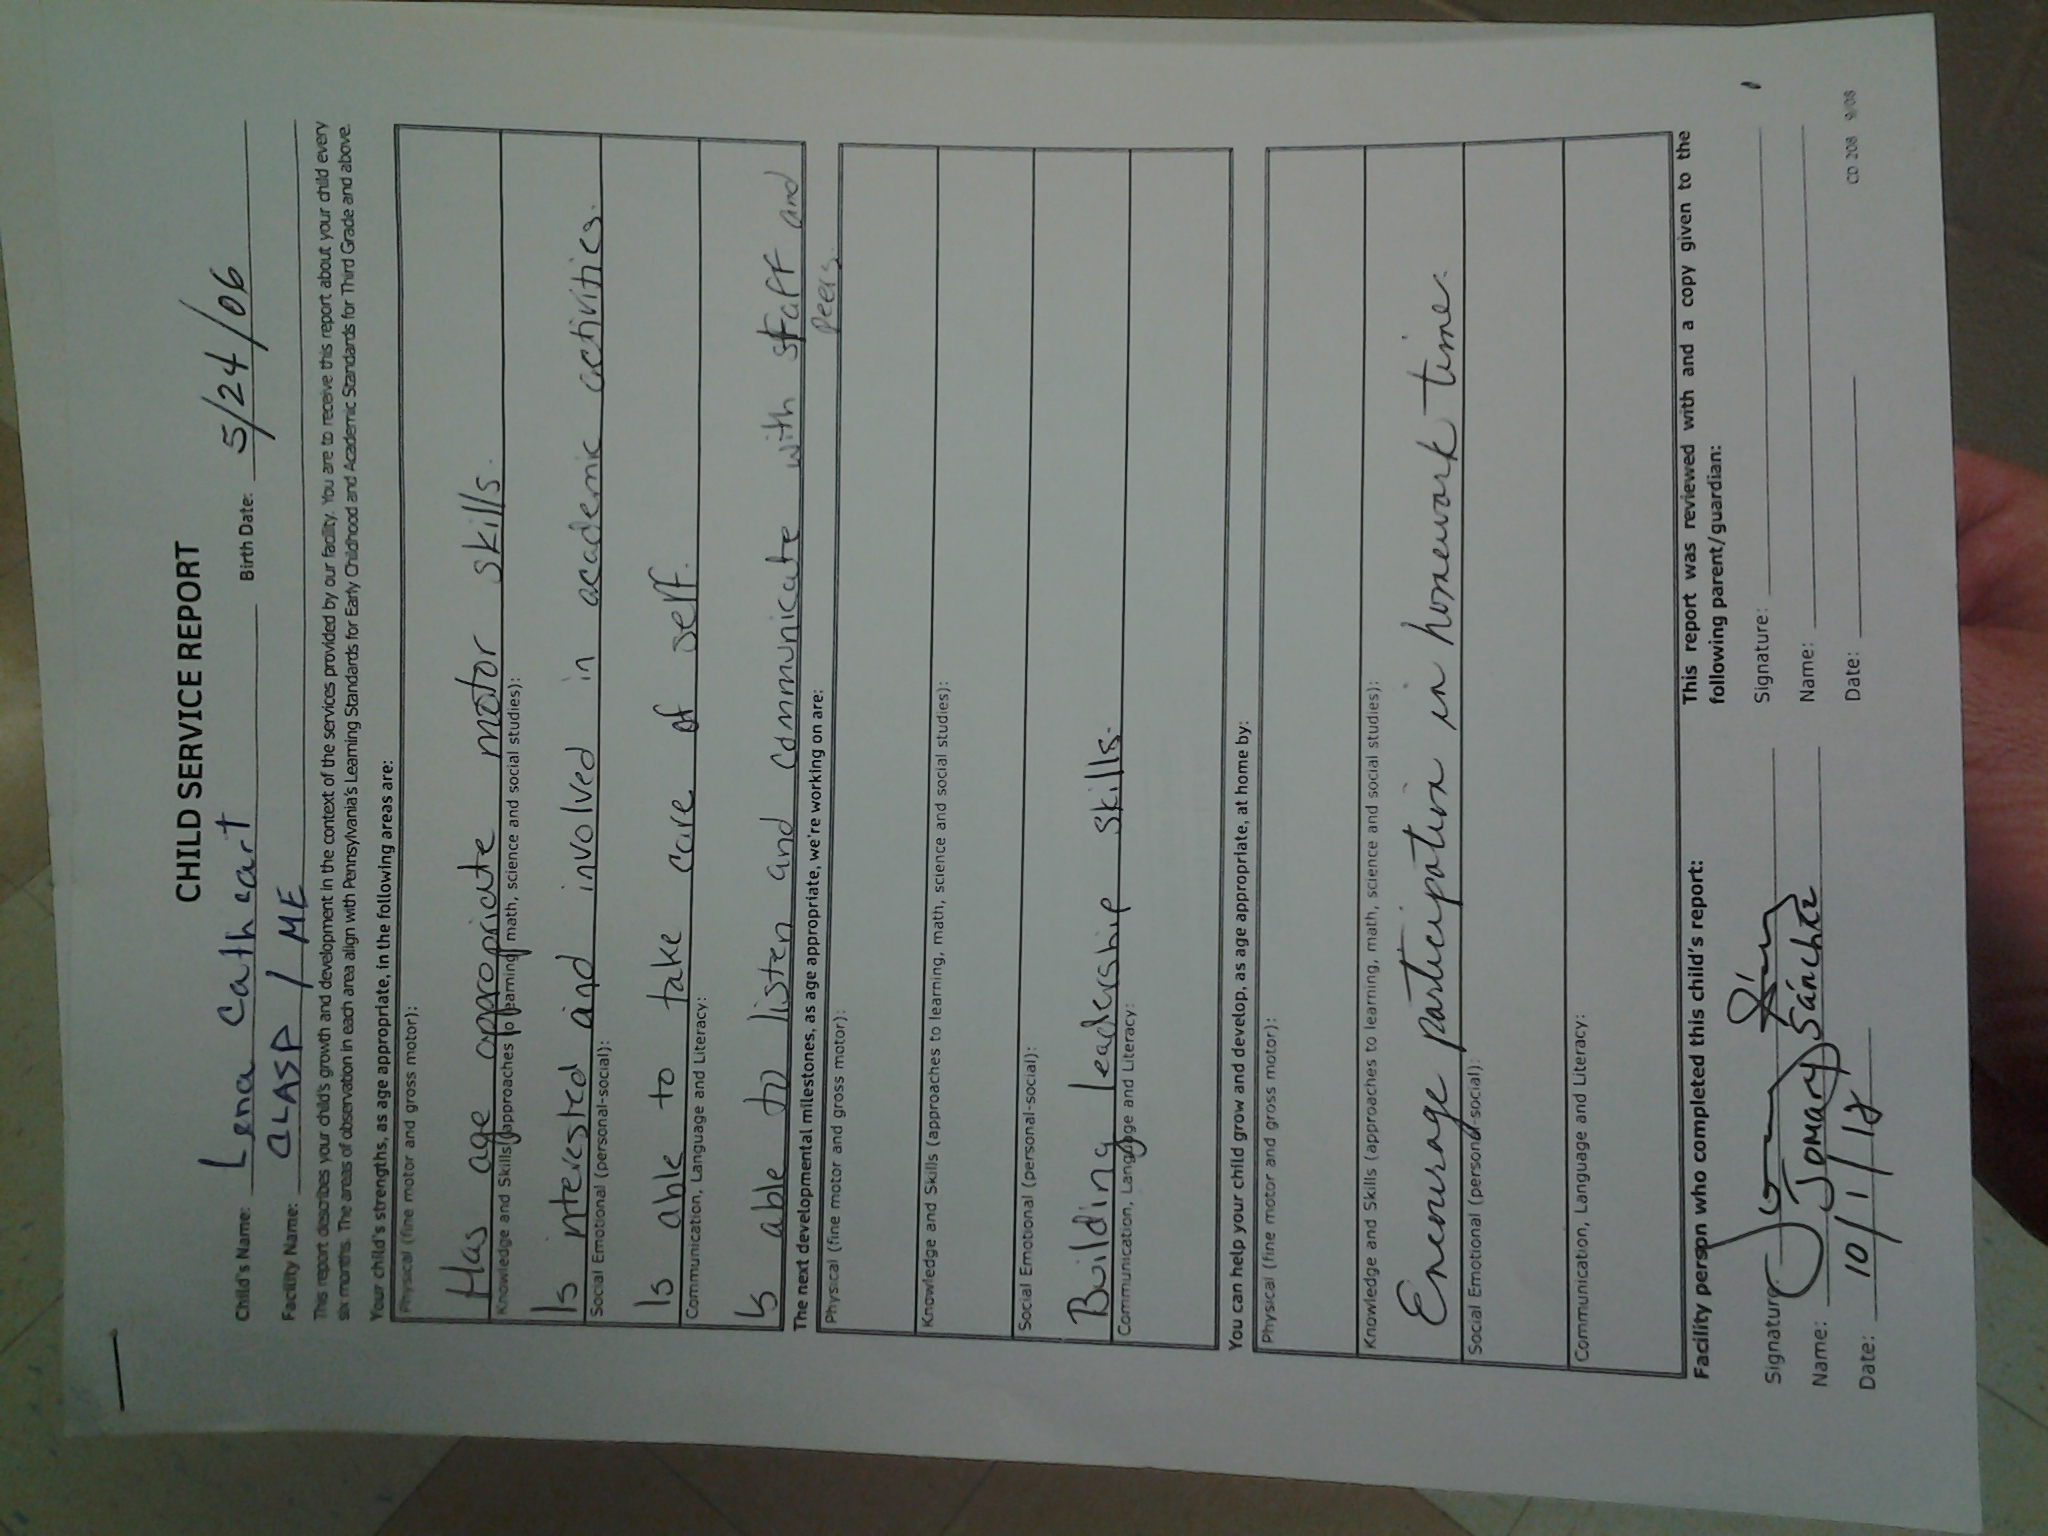 CHILD SERVICE REPORT
Child's Name: Lena Cathcart Birth Date: 5/24/06
Facility Name: CLASP / ME
This report describes your child's growth and development in the context of the services provided by our facility. You are to receive this report about your child every
six months. The areas of observation in each area align with Pennsylvania's Learning Standards for Early Childhood and Academic Standards for Third Grade and above.
Your child's strengths, as age appropriate, in the following areas are:
Physical (fine motor and gross motor):
Has age appropriate motor skills.
Knowledge and Skills (approaches to learning, math, science and social studies):
Is interested and involved in academic activities.
Social Emotional (personal-social):
Is able to take care of self.
Communication, Language and Literacy:
Is able to listen and communicate with staff and
peers.
The next developmental milestones, as age appropriate, we're working on are:
Physical (fine motor and gross motor):
Knowledge and Skills (approaches to learning, math, science and social studies):
Social Emotional (personal-social):
Building leadership skills.
Communication, Language and Literacy:
You can help your child grow and develop, as age appropriate, at home by:
Physical (fine motor and gross motor):
Knowledge and Skills (approaches to learning, math, science and social studies):
Encourage participation in homework time.
Social Emotional (personal-social):
Communication, Language and Literacy:
Facility person who completed this child's report:
Signature:
Name: Jomary Sánchez
Date: 10/1/12
This report was reviewed with and a copy given to the
following parent/guardian:
Signature:
Name:
Date:
CD 208 9/08